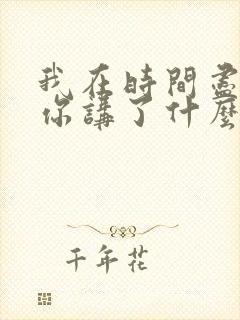 我在時間盡
你講了什麼
千年花